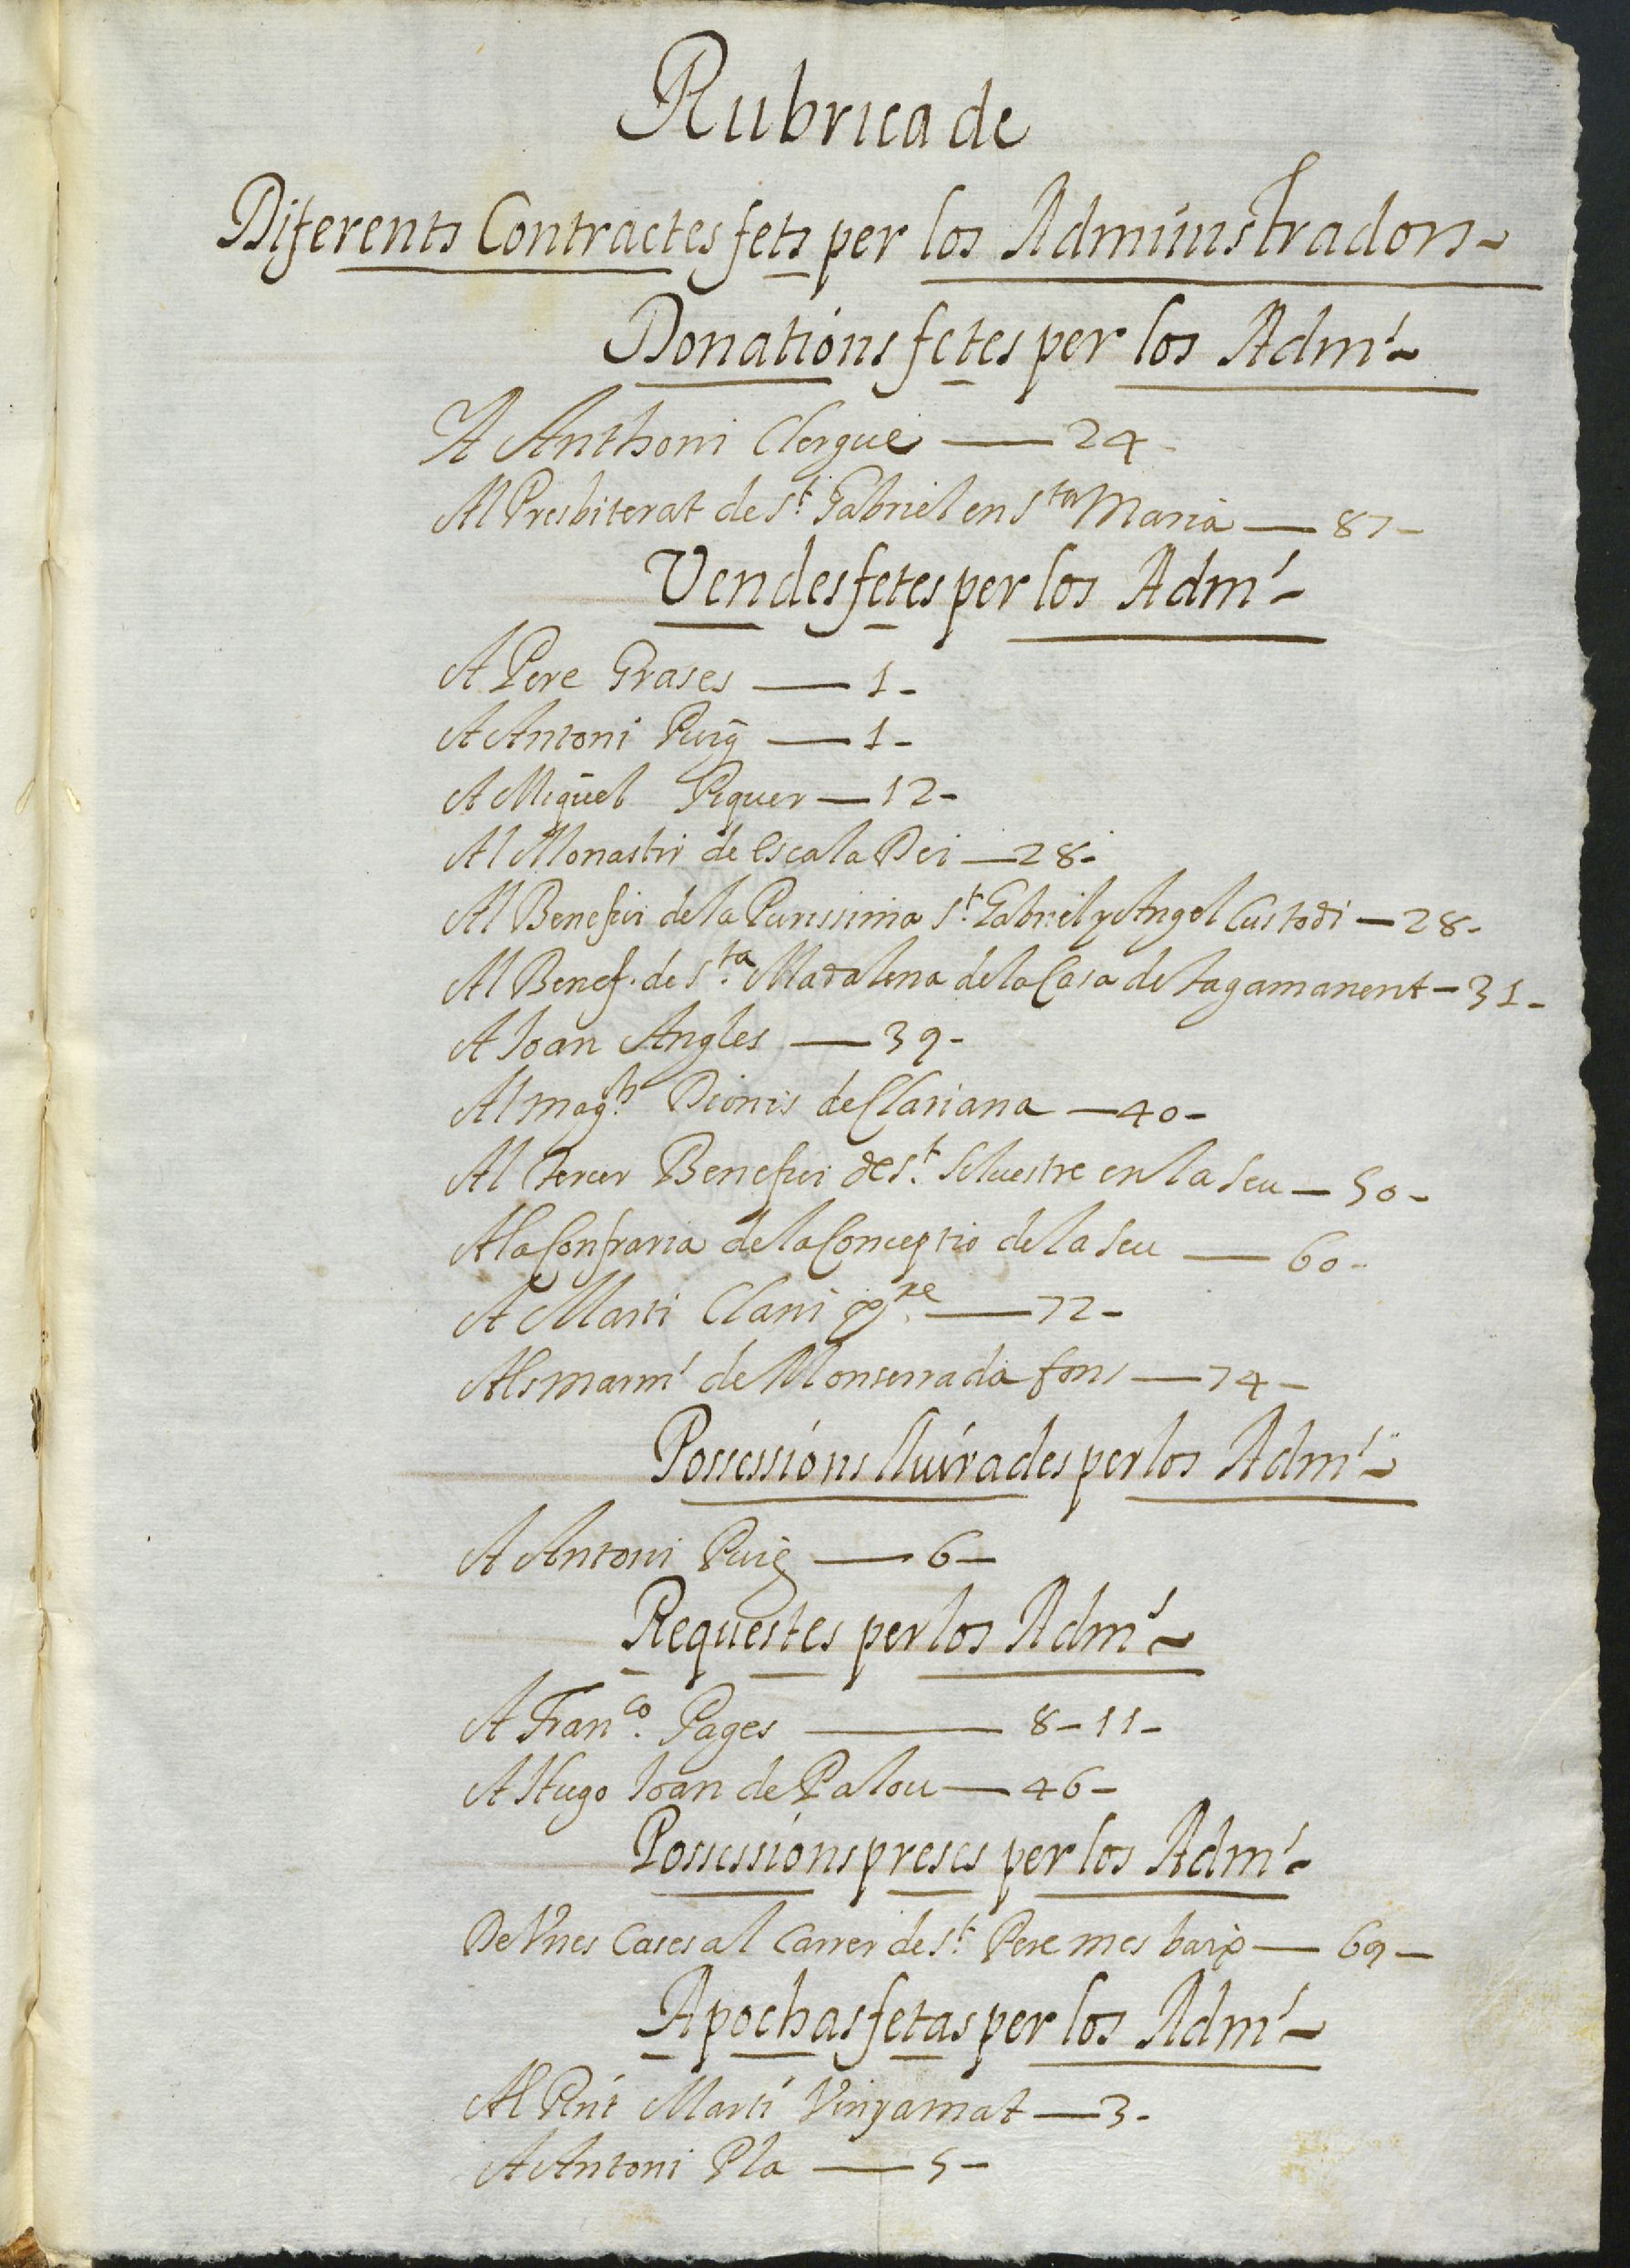 Rubrica de
Diferents Contractes fets per los Administradors
Donations fetes per los Adm.ˢ
A Anthoni Clergue — 24 -
Al Presbiterat de S.t Gabriel en S.ta Maria — 87 -
Vendes fetes per los Adm.ˢ
A Pere Grases — 1 -
A Antoni Puig — 1 -
A Miquel Piquer — 12 -
Al Monastir de Escala Dei — 28 -
Al Benefici de la Purissima S.t Gabriel y Angel Custodi — 28 -
Al Benef. de S.ta Madalena de la Casa de Tagamanent — 31 -
A Joan Angles — 39 -
Al mag.ch Dionis de Clariana — 40 -
Al Tercer Benefici de S.t Silvestre en la Seu — 50 -
A la Confraria de la Conceptio de la Seu — 60 -
A Marti Clani p.re — 72 -
Als marm.ˢ de Monserrada fons — 74 -
Possessions lluirades per los Adm.ˢ
A Antoni Puig — 6 -
Requestes per los Adm.ˢ
A Fran.co Pages — 8 - 11 -
A Hugo Joan de Palou — 46 -
Possessions preses per los Adm.ˢ
De Unes Cases al Carrer de S.t Pere mes baix — 69 -
Apochas fetas per los Adm.ˢ
Al Marti Vinyamat — 3 -
A Antoni Pla — 5 -